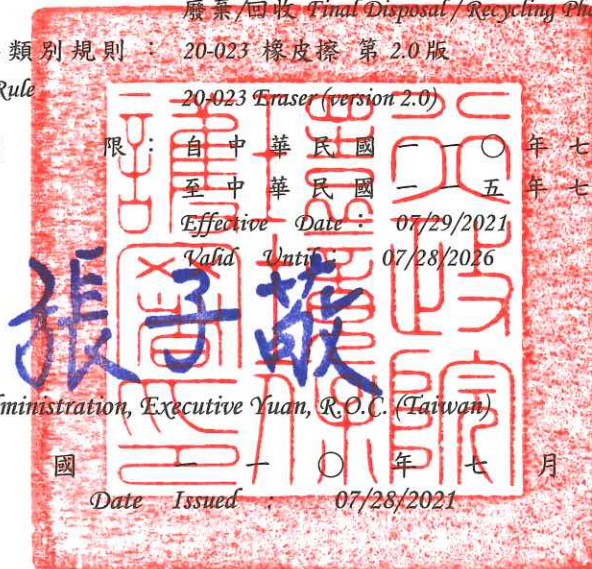 廢棄/回收 Final Disposal / Recycling Pha
類別規則 : 20-023 橡皮擦 第 2.0 版
Rule 20-023 Eraser (version 2.0)
限 : 自中華民國一一○年七
至中華民國一一五年七
Effective Date : 07/29/2021
Valid Until : 07/28/2026
張子敬
ministration, Executive Yuan, R.O.C. (Taiwan)
國 一一○年七月
Date Issued : 07/28/2021
行政院環境保護署印